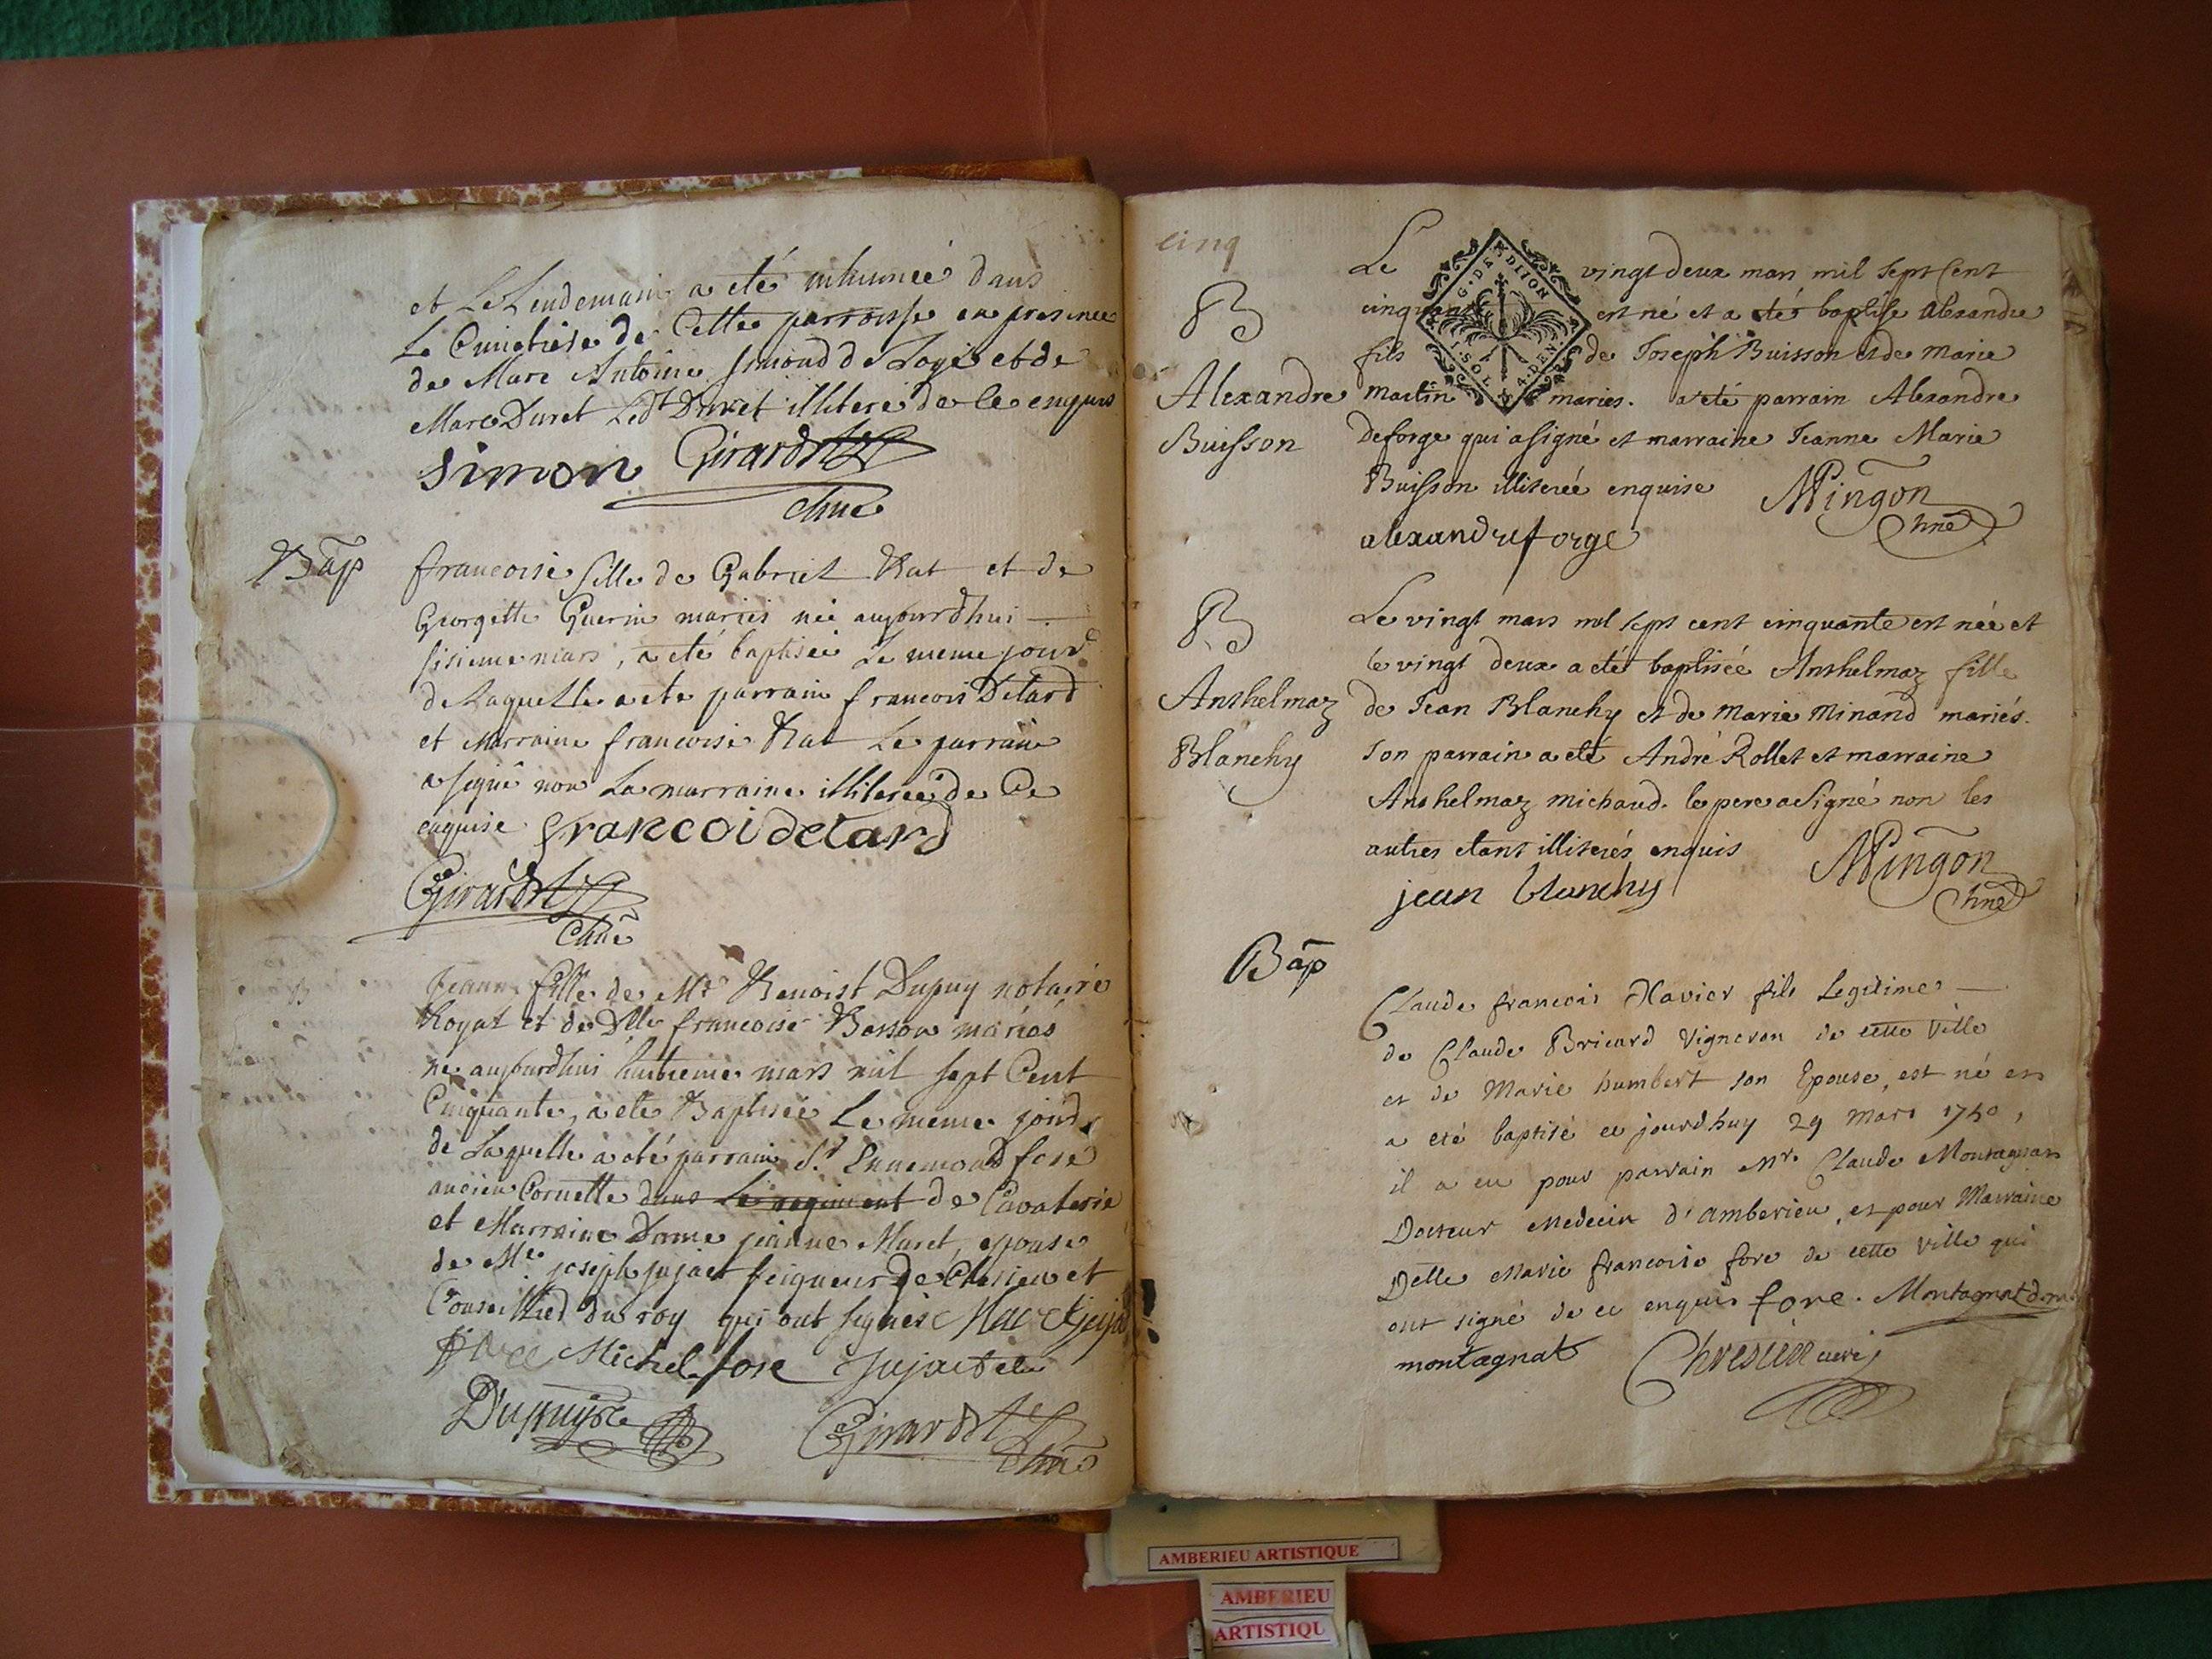 et Le Lendemain a eté inhumée dans
Le Cimetiere de Cette parroisse en presence
de Marc Antoine simond de et de
Marc Duret Led.t Duret illitere de ce enquis
simon Girardet
chne
Bap
francoise fille de Gabriel Rat et de
Georgette Guerin mariés née aujourdhui
sisieme mars, a eté baptisée Le meme jour
de Laquelle a ete parrain francois Detard
et Marraine francoise Rat Le parrain
a signé non La marraine illiterée de Ce
enquise francoi detard
Girardet
chne
Jeanne fille de Me Benoist Dupuy notaire
Royal et de Dlle francoise Bosson mariés
ne aujourdhui huitieme mars mil sept Cent
Cinquante, a ete Baptisée Le meme jour
de Laquelle a eté parrain Sr Ennemond fore
ancien Cornette dans Le regiment de Cavalerie
et Marraine Dame jeanne Maret, epouse
de Mre joseph jujat seigneur de et
Conseillier du roy qui ont signés
Michel fore
Dupuy
Girardet
chne
cinq
G. DE DIJON
I. SOL 4. DEN.
Le vingt deux mars mil sept Cent
cinquante est né et a eté baptise alexandre
fils de Joseph Buisson et de marie
martin mariés. a eté parrain Alexandre
deforge qui a signé et marraine Jeanne Marie
Buisson illiterée enquise Mingon
chne
alexandre forge
B
Alexandre
Buisson
Le vingt mars mil sept cent cinquante est née et
le vingt deux a eté baptisée Anthelmaz fille
de Jean Blanchy et de marie minand mariés.
son parrain a eté André Rollet et marraine
Anthelmaz michaud. le pere a signé non les
autres etant illiterés enquis Mingon
chne
jean blanchy
B
Anthelmaz
Blanchy
Bap
Claude francois Xavier fils Legitime
de Claude Bricard Vigneron de cette Ville
et de Marie humbert son Epouse, est né et
a eté baptisé ce jourdhuy 29 mars 1750,
il a eu pour parrain Mr. Claude Montagnat
Docteur Medecin d'amberieu, et pour Marraine
Delle Marie francoise fore de cette ville qui
ont signé de ce enquis fore. Montagnat d.m.
montagnat Chrestien curé
AMBERIEU ARTISTIQUE
AMBERIEU
ARTISTIQU